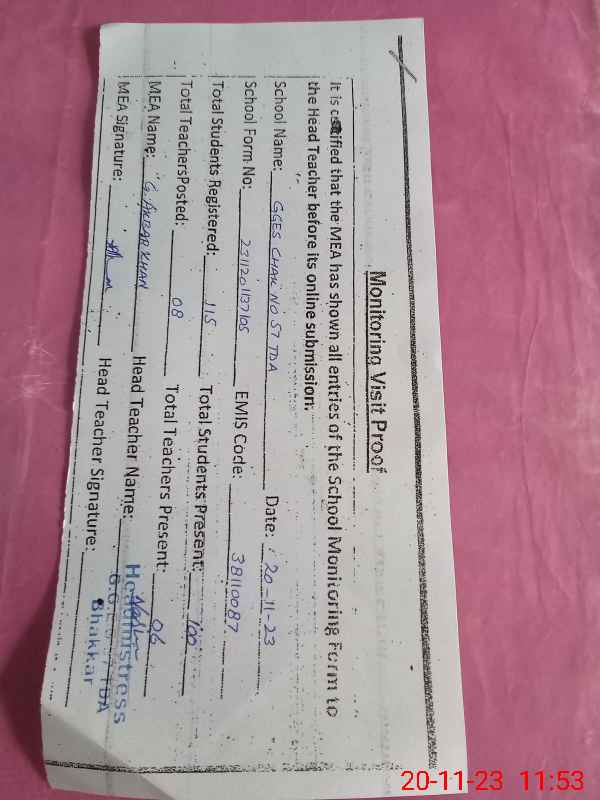 Monitoring Visit Proof
It is certified that the MEA has shown all entries of the School Monitoring Form to
the Head Teacher before its online submission.
School Name: GGES CHAK NO 57 TDA Date: 20-11-23
School Form No: EMIS Code: 38110087
Total Students Registered: 115 Total Students Present: 100
Total TeachersPosted: 08 Total Teachers Present: 06
MEA Name: G. AKBAR KHAN Head Teacher Name:
MEA Signature: Head Teacher Signature:
Headmistress
TDA
Bhakkar
20-11-23 11:53